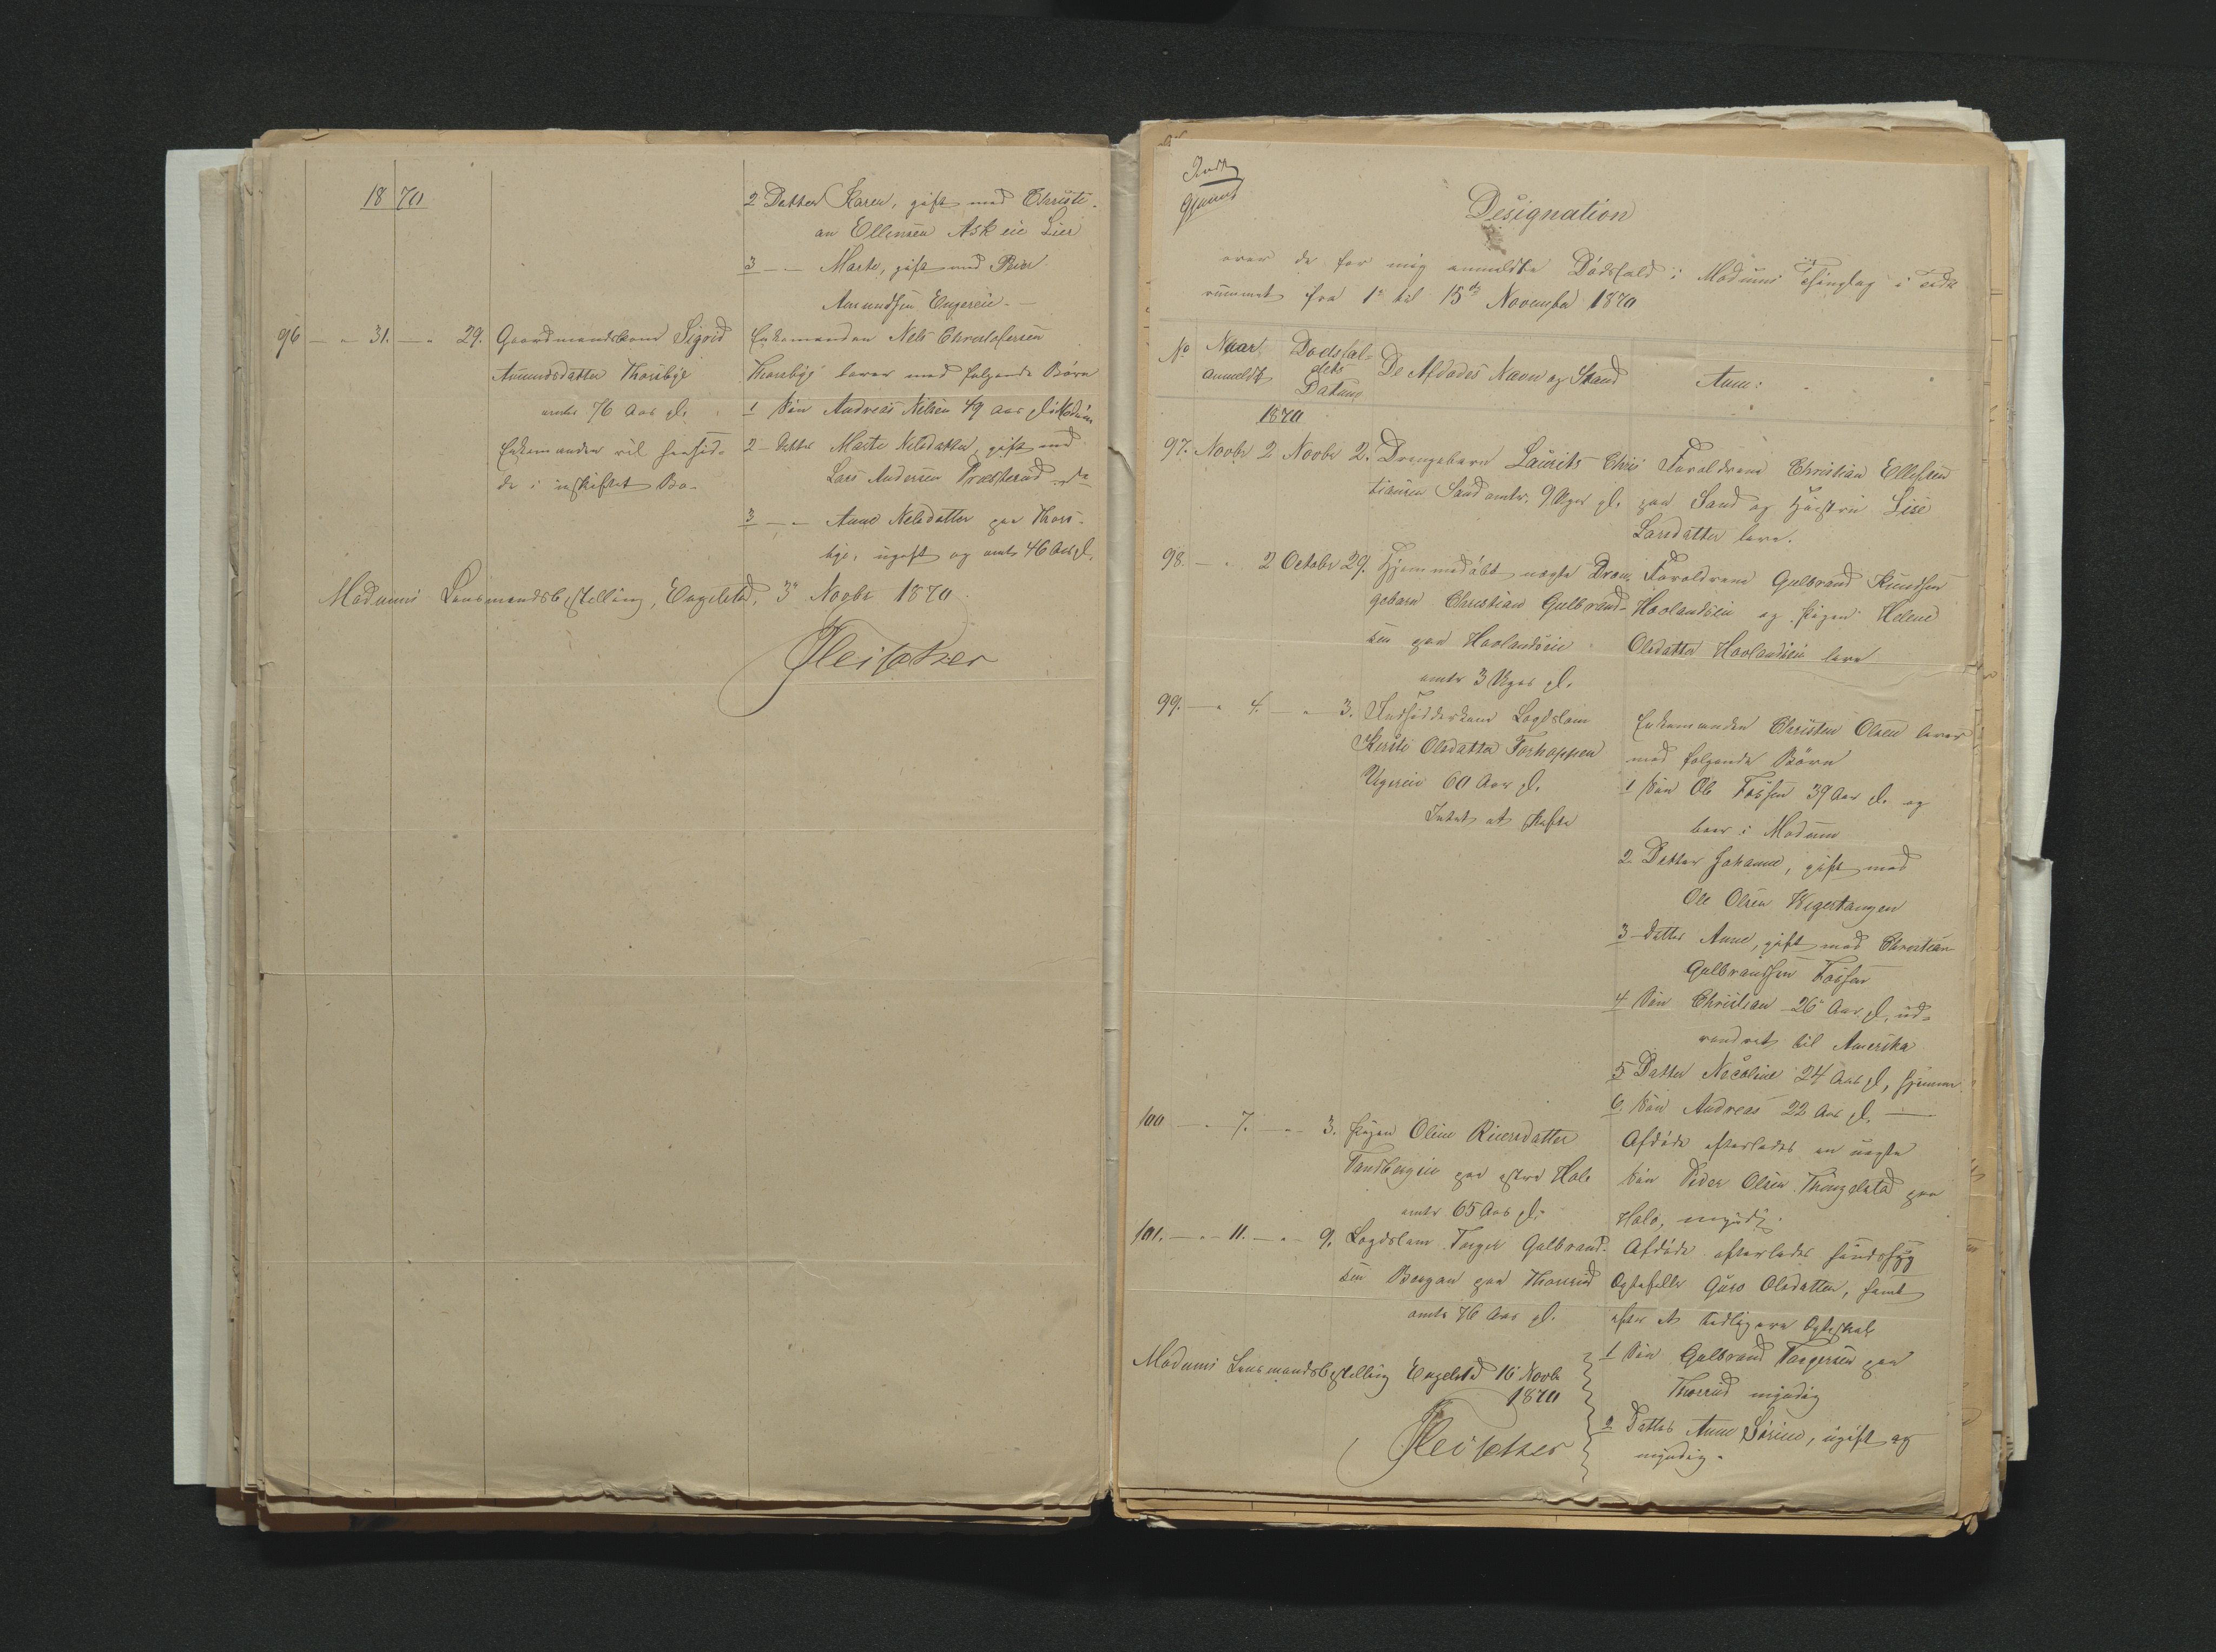 1870
2 Datter Karen, gift med Christi-
an Ellensen Ask eie Lier
3 — Marte, gift med Peder
Amundsen Engereie.
96 — " 31. — " 29. Gaardmandskone Sigrid
Amundsdatter Thorsbye
omtr 76 Aar gl.
Enkemanden vil hensid-
de i uskiftet Bo.
Enkemanden Nels Christofersen
Thorsbye lever med følgende Børn
1 Søn Andreas Nelsen 49 Aar gl. i Modum
2 Datter Marte Nelsdatter, gift med
Lars Andersen Præsterud
3 — Anne Nelsdatter paa Thors-
bye, ugift og omtr 46 Aar gl.
Modums Lensmandsbestilling, Engelstad, 3 Novbr 1870
Designation
over de for mig anmeldte Dødsfald i Modums Thinglag i Tids
rummet fra 1 til 15de November 1870
No Naar anmeldt Dødsfal-
dets Datum De Afdødes Navn og Stand Anm:
1870
97. Novbr 2 Novbr 2. Drengebarn Laurits Chris
tiansen Sand omtr. 9 Uger gl.
Forældrene Christian Ellefsen
paa Sand og Hustru Lise
Larsdatter leve.
98. — " 2 Octobr 29. Hjemmedøbt uægte Dren-
gebarn Christian Gulbrand-
sen paa Haolandseie
omtr 3 Uger gl.
Forældrene Gulbrand Knudsen
Haolandseie og Pigen Helene
Olsdatter Haolandseie leve
99. — " 4. — " 3. Indsidderkone Lægdslem
Kirsti Olsdatter Forhappen
60 Aar gl.
Intet at skifte
Enkemanden Christen Olsen lever
med følgende Børn
1 Søn Ole Fossen 39 Aar gl. og
boer i Modum
2 Datter Johanne, gift med
Ole Olsen Vigertangen
3 Datter Anne, gift med Christian
Gulbrandsen Fossen
4 Søn Christian 26 Aar gl, ud-
vandret til Amerika
5 Datter Nicoline 24 Aar gl, hjemme
6. Søn Andreas 22 Aar gl. —
100 — " 7. — " 3. Pigen Oline Riersdatter
paa østre Hole
omtr 65 Aar gl.
Afdøde efterlader en uægte
Søn Peder Olsen Thingelstad paa
Hole, myndig.
101. — " 11. — " 9. Lægdslem Torger Gulbrand-
sen Bergan paa Thorrud
omtr 76 Aar gl.
Afdøde efterlader sindssyg
Ægtefælle Guro Olsdatter, samt
efter et tidligere Ægteskab
1 Søn Gulbrand Torgersen paa
Thorrud myndig
2 Datter Anne Sørine, ugift og
myndig.
Modums Lensmandsbestilling Engelstad 16 Novbr
1870